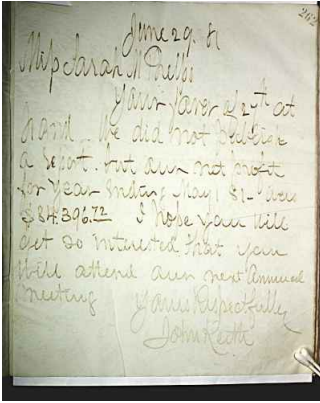 262
June 29. 81
Miss Sarah M Phelps
Your favor of 27th at
hand. We did not publish
a report. but our net profit
for year ending May 1 81 - was
$84.396.72 I hope you will
get so interested that you
will attend our next annual
meeting Yours Respectfully
John Keith